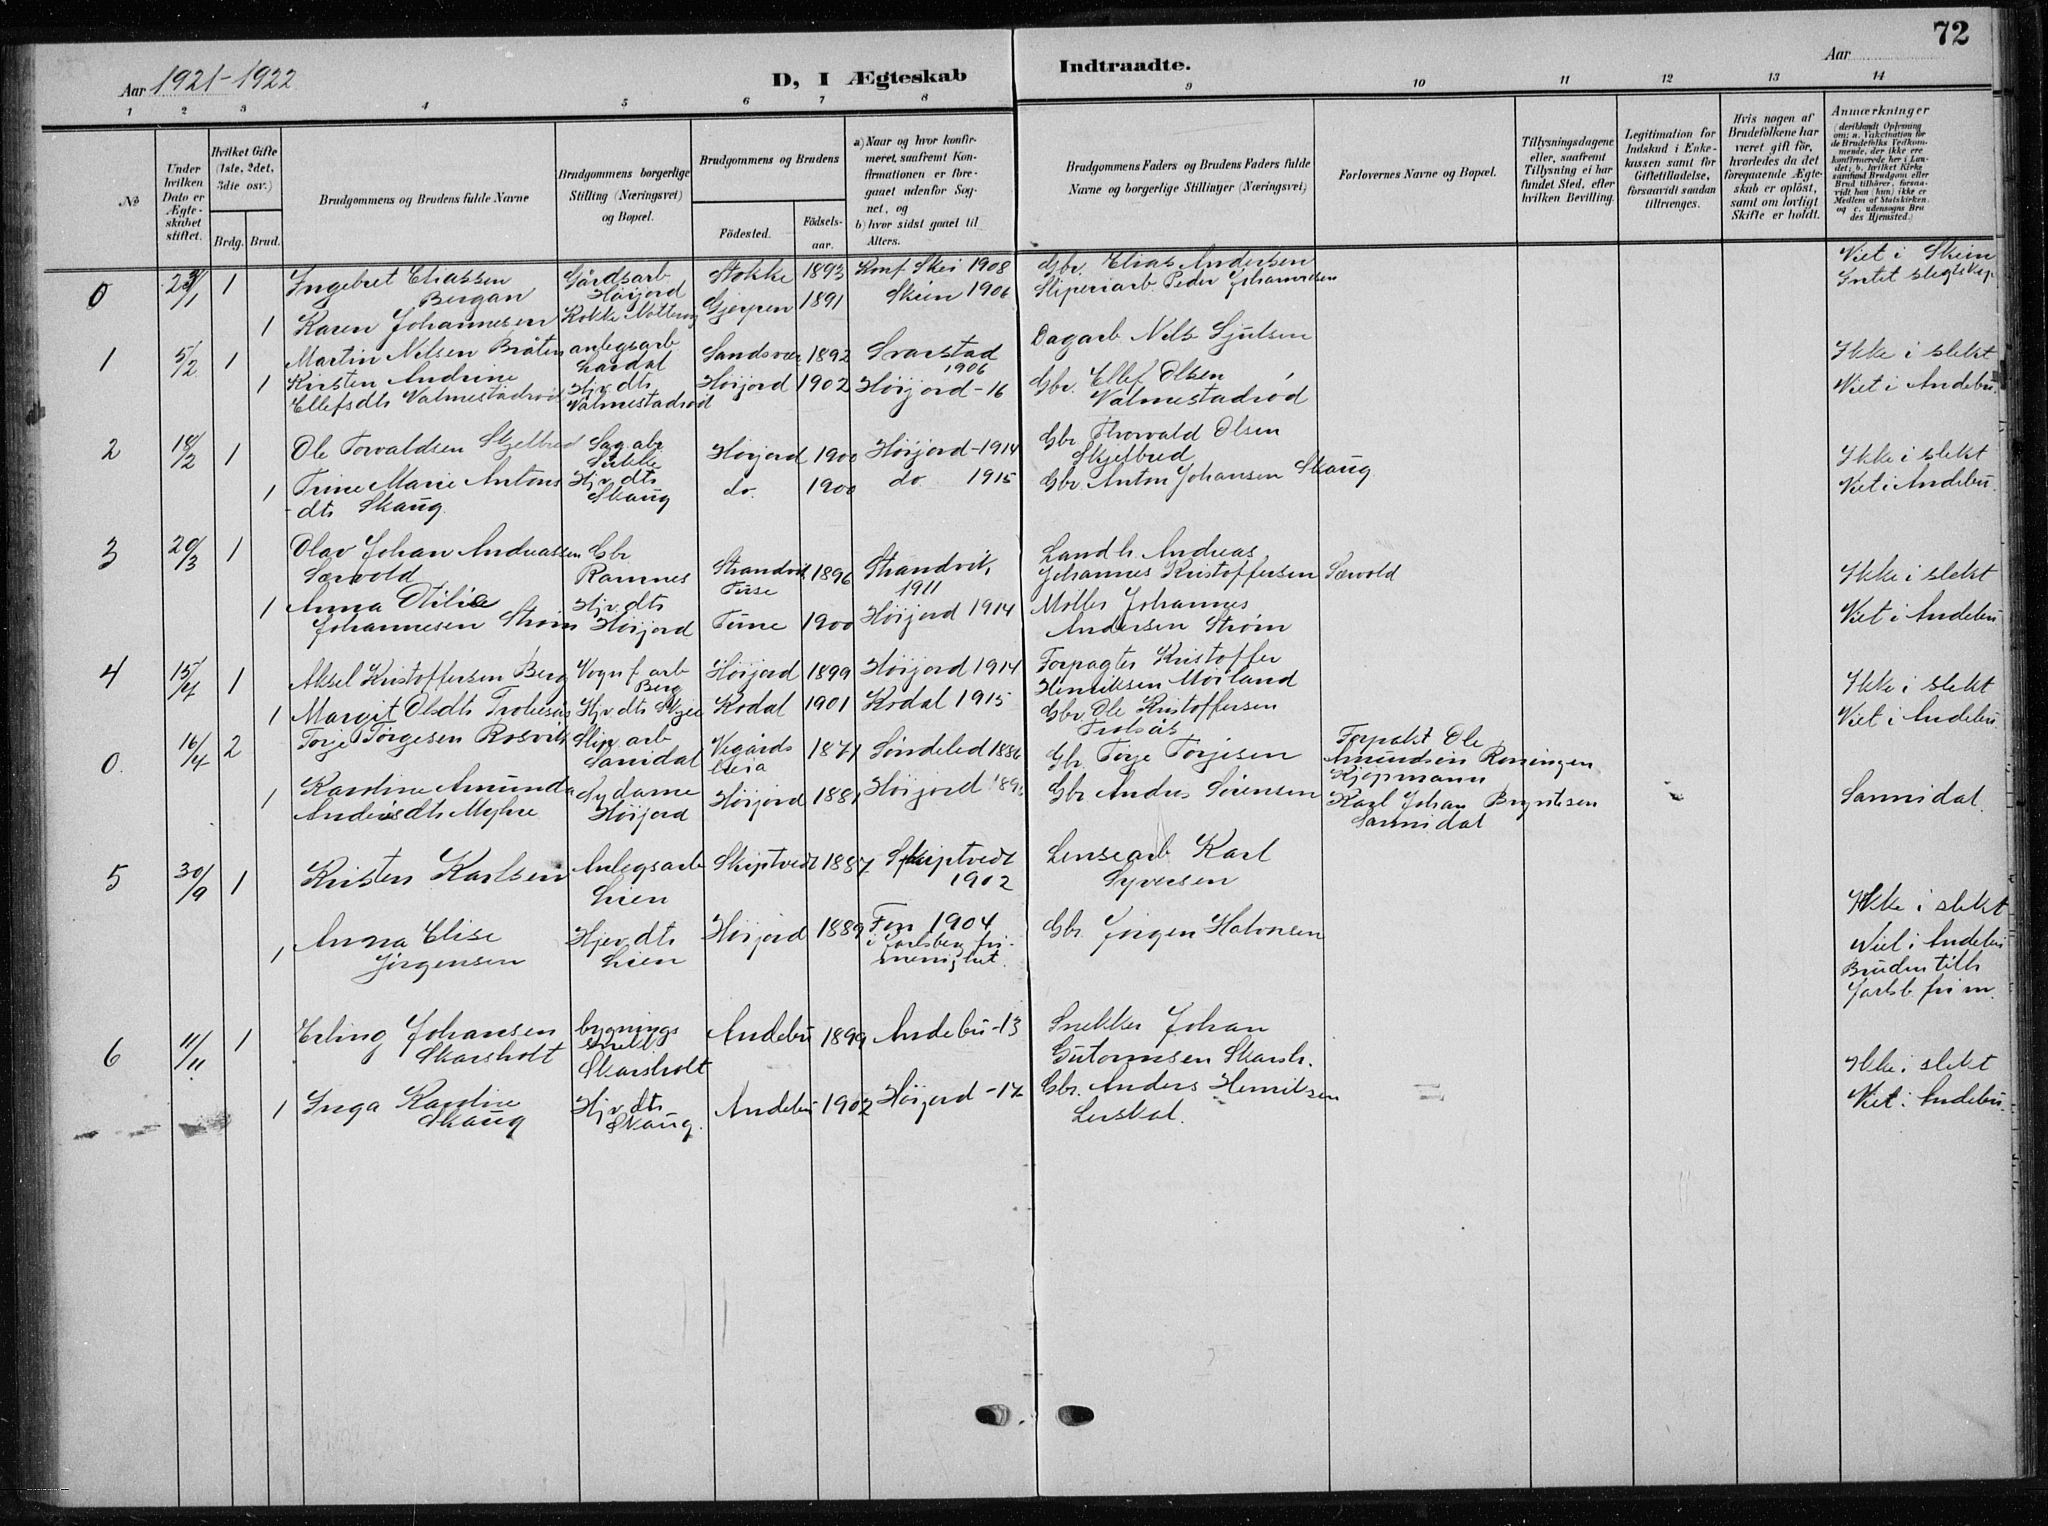 72
Aar 1921-1922
D, I Ægteskab
Indtraadte.
Aar
1 2 3 4 5 6 7 8 9 10 11 12 13 14
No
Under hvilken Dato er Ægteskabet stiftet.
Hvilket Gifte (1ste, 2det, 3die osv.)
Brdg. Brud.
Brudgommens og Brudens fulde Navne
Brudgommens borgerlige Stilling (Næringsvei) og Bopæl.
Brudgommens og Brudens
Födested.
Födsels-aar.
a) Naar og hvor konfirmeret, saafremt Konfirmationen er foregaaet udenfor Sognet, og
b) hvor sidst gaaet til Alters.
Brudgommens Faders og Brudens Faders fulde Navne og borgerlige Stillinger (Næringsvei)
Forlovernes Navne og Bopæl.
Tillysningsdagene eller, saafremt Tillysning ei har fundet Sted, efter hvilken Bevilling.
Legitimation for Indskud i Enkekassen samt for Giftetilladelse, forsaavidt saadan tiltrænges.
Hvis nogen af Brudefolkene har været gift för, hvorledes da det foregaaende Ægteskab er oplöst, samt om lovligt Skifte er holdt.
Anmærkninger
(deriblandt Oplysning om: a. Vakcination for de Brudefolks Vedkommende, der ikke ere konfirmerede her i Landet; b. hvilket Kirkesamfund Brudgom eller Brud tilhörer, forsaavidt han (hun) ikke er Medlem af Statskirken, og c. udensogns Brudes Hjemsted.)
0 1 Ingebret Eliassen Bergan Gårdsarb Høijord Stokke 1893 Konf Skei 1908 Gbr. Elias Andersen Viet i Skien
1 Karen Johannesen Kokke Nøtterøy Gjerpen 1891 Skien 1906 Sliperiarb Peder Johannesen Intet slegtskap
1 5/2 1 Martin Nilsen Bråten anlegsarb Lardal Sandsvær 1892 Svarstad 1906 Dagarb Nels Sjulsen Ikke i slekt
1 Kirsten Andrine Ellefsdts Valmestadrød Hjv. dts Valmestadrød Høijord 1902 Høijord - 16 Gbr. Ellef Olsen Valmestadrød Viet i Andebu
2 18/2 1 Ole Torvaldsen Skjelbred Sagarb Høijord 1900 Høijord - 1914 Gbr Thorvald Olsen Skjelbred Ikke i slekt
1 Trine Marie Antonsdts Skaug Hjv dts Skaug do. 1900 do. 1915 Gbr. Anton Johansen Skaug Viet i Andebu.
3 20/3 1 Olav Johan Andreassen Særvold Gbr Ramnes Strandvik 1896 Strandvik, 1911 Landh. Andreas Johannes Kristoffersen Særvold Ikke i slekt
1 Anna Otilie Johannesen Strøm Hjv. dts Høijord Tune 1900 Høijord 1914 Møller Johannes Andersen Strøm Viet i Andebu
4 15/4 1 Aksel Kristoffersen Berg Vognf arb Berg Høijord 1899 Høijord 1914 Forpagter Kristoffer Henriksen Møiland Ikke i slekt
1 Margit Olsdts Trolsås Hjv. dts Kodal 1901 Kodal 1915 Gbr. Ole Kristoffersen Trolsås Viet i Andebu
0. 16/4 2 Torje Torgesen Rosvik Slip arb Sanidal Vegårdsheia 1871 Søndeled 1886 Gbr Torje Torjesen Forpakt Ole Amundsen Rønningen
1 Karoline Amunda Andersdts Myhre Sydame Høijord Høijord 1881 Høijord Gbr Anders Sørensen Kjøpmann Karl Johan Sannidal Sannidal.
5 30/9 1 Kristen Karlsen Anlegsarb Lien Skiptvedt 1887 Skiptvedt 1902 Lensearb Karl Syversen Ikke i slekt
1 Anna Elise Jørgensen Hjv. dts Lien Høijord 1889 Fon 1904 i Jarlsberg frimenighet. Gbr. Jørgen Halvorsen Viet i Andebu Bruden tilh Jarlsb. fri m.
6 11/11 1 Erling Johansen Skarsholt bygnings snekk. Skarsholt Andebu 1899 Andebu - 13 Snekker Johan Gutormsen Skarsh. Ikke i slekt
1 Inga Karoline Skaug Hjv. dts Skaug. Andebu 1902 Høijord - 17 Gbr. Anders Henriksen Lerskal. Viet i Andebu.